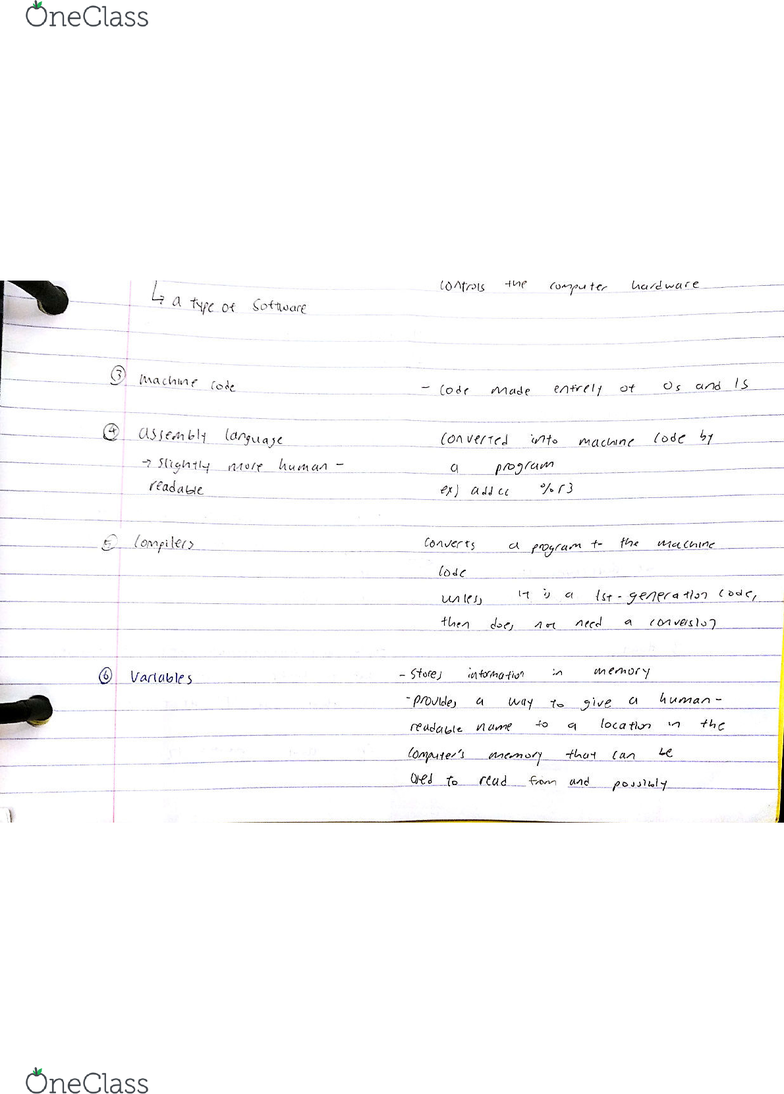 OneClass
controls the computer hardware
↳ a type of software
③ machine code - code made entirely of 0s and 1s
④ assembly language converted into machine code by
→ slightly more human- a program
readable ex) addcc %r3
⑤ compilers converts a program to the machine
code
unless it is a 1st-generation code,
then does not need a conversion
⑥ Variables - stores information in memory
- provides a way to give a human-
readable name to a location in the
computer's memory that can be
used to read from and possibly
OneClass